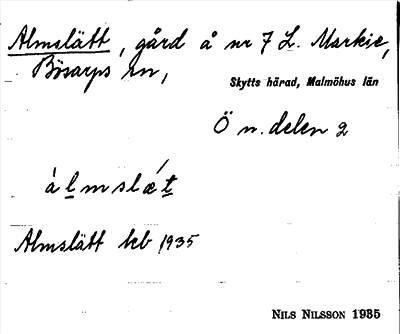 Almslätt, gård å nr 7 L. Markie,
Bösarps sn,
Skytts härad, Malmöhus län
Ö n. delen 2
álmslǽt
Almslätt kb 1935
NILS NILSSON 1935